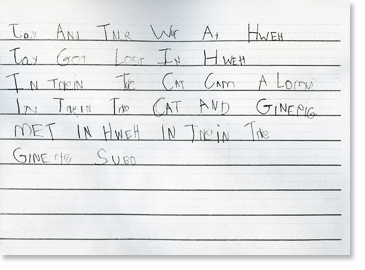 Tay And Tmr Wr At Hweh
Tay Got Lost In Hweh
In Thein The Cat Cam A Lomu
In Thein The CAT AND GINEPIG
MET IN HWEH IN Thein The
GINEPIG